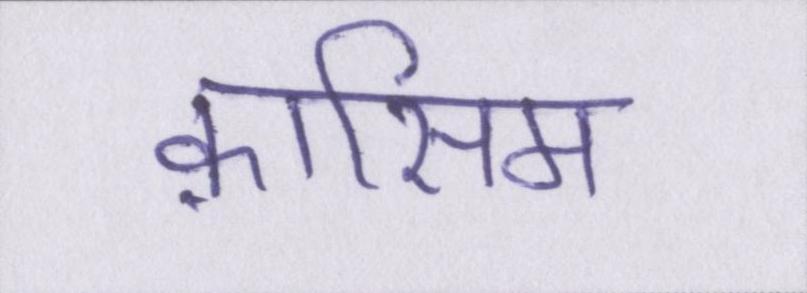 क़ासिम